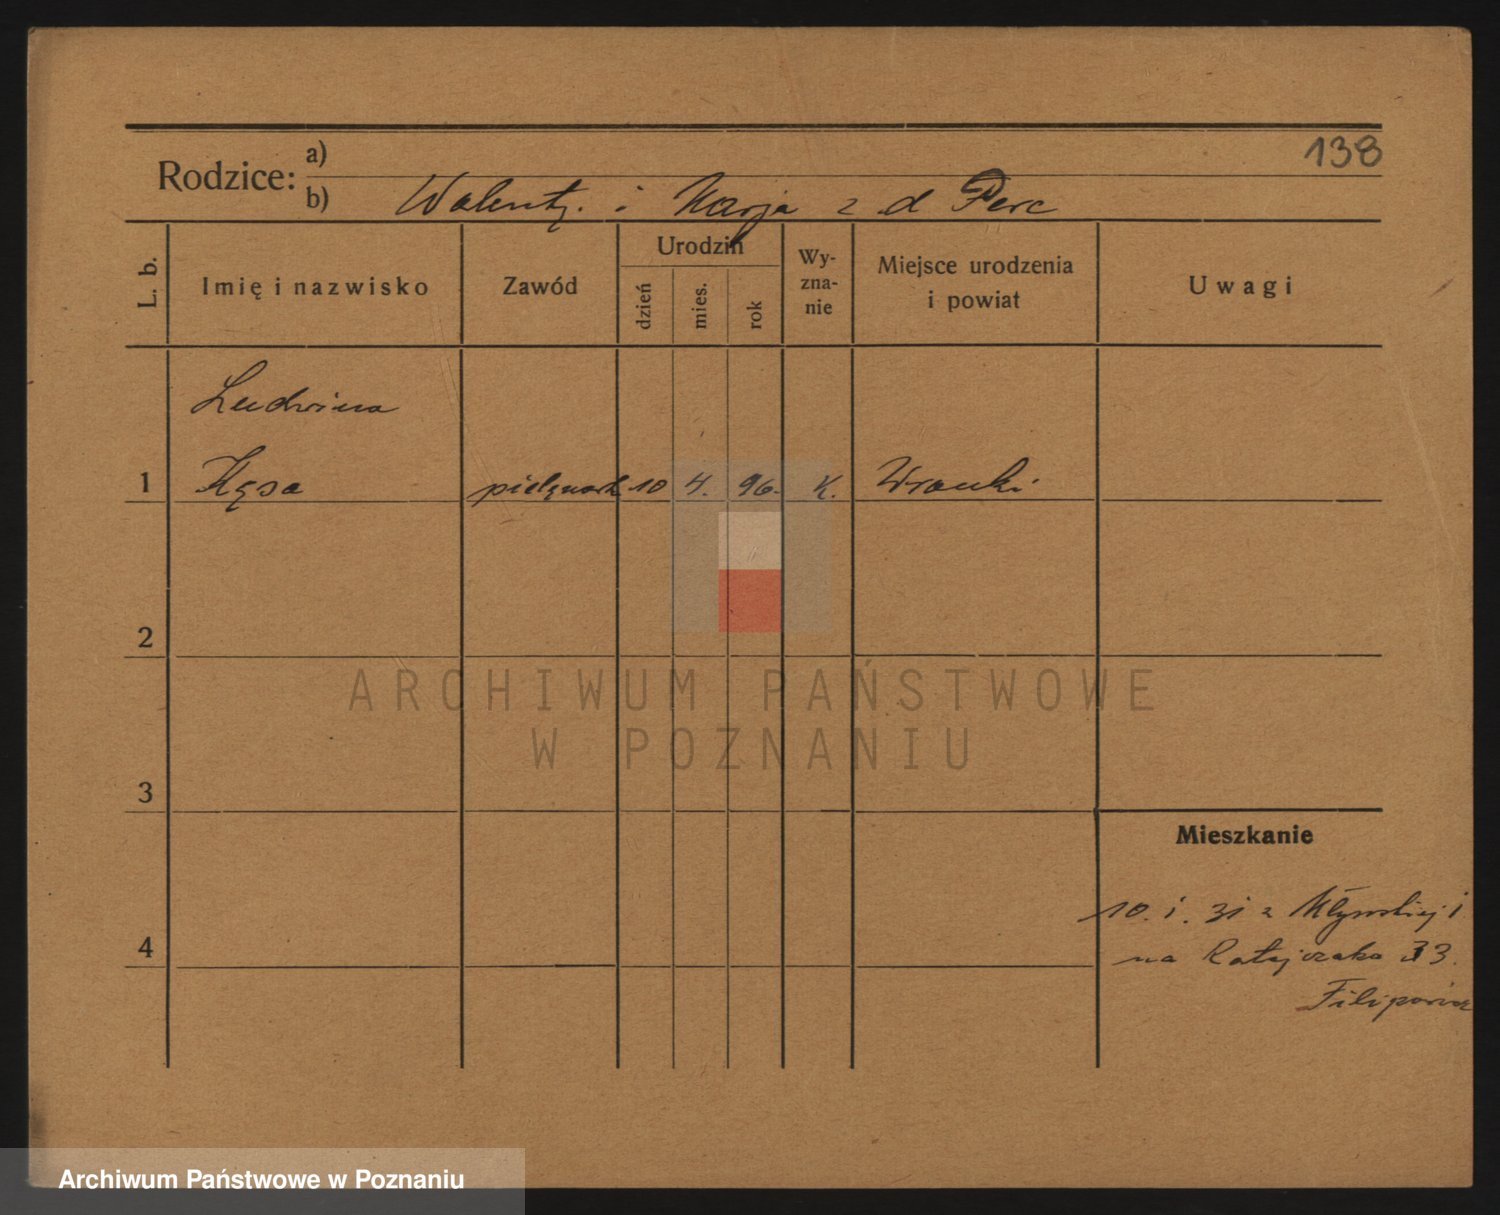 138
Rodzice: a)
b) Walenty. i Marja z d Perc
L. b.
Imię i nazwisko
Zawód
Urodzin
dzień
mies.
rok
Wy-
zna-
nie
Miejsce urodzenia
i powiat
Uwagi
Ludwina
1 Kęsa pielęgnark 10 4. 96. K. Wronki
2
ARCHIWUM PAŃSTWOWE
W POZNANIU
3
Mieszkanie
10. i. 31 z Młyńskiej i
4
na Ratajczaka 33.
Filipowicz
Archiwum Państwowe w Poznaniu